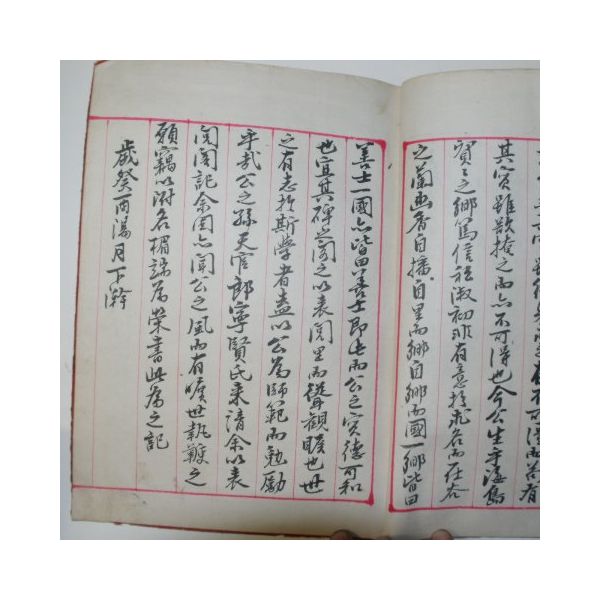 其實雖欲掩之而亦不可得也今公生乎海島
之鄕篤信私淑初非有意於求名而在谷
之蘭幽香自播自里而鄕自鄕而國一鄕皆曰
善士一國亦皆曰善士卽此而公之實德可知
也宜其碑之以表閭里而聳觀瞻也世
之有志於斯學者盍以公爲師範而勉勵
乎哉公之孫天官郞寧賢氏來請余以表
閭閣記余固亦聞公之風而有曠世執鞭之
願竊以附名楣端爲榮書此爲之記
歲癸酉陽月下澣